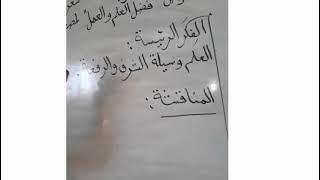 فضل العلم والعمل
الفكر الرئيسة :
العلم وسيلة الشرف والرفعة .
المناقشة :